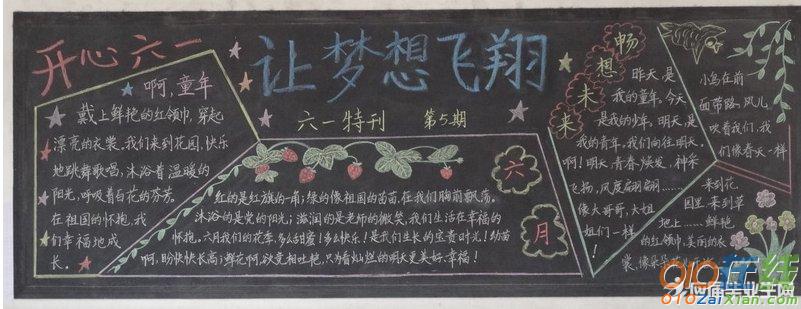 开心六一
让梦想飞翔
六一特刊 第5期
啊,童年
戴上鲜艳的红领巾,穿起
漂亮的衣裳。我们来到花园,快乐
地跳舞歌唱,沐浴着温暖的
阳光,呼吸着百花的芬芳。
在祖国的怀抱,我
们幸福地成
长。
六月
红的是红旗的一角;绿的像祖国的苗苗,在我们胸前飘荡。
沐浴的是党的阳光;滋润的是老师的微笑,我们生活在幸福的
怀抱。六月我们的花季,多么甜蜜!多么快乐!是我们生长的宝贵时光!幼苗
啊,盼快快长高;鲜花啊,欲竞相吐艳,只为着灿烂的明天更美好、幸福!
畅想未来
昨天,是
我的童年,今天
是我的少年,明天,是
我的青年,我们向往明天。
啊!明天,青春焕发,神采
飞扬,风度翩翩……
像大哥哥,大姐
姐们一样
小鸟在前
面带路,风儿
吹着我们,我
们像春天一样
来到花
园里,来到草
地上……鲜艳
的红领巾,美丽的衣
裳,像朵朵
910在线
910ZaiXian.com
应届毕业生网